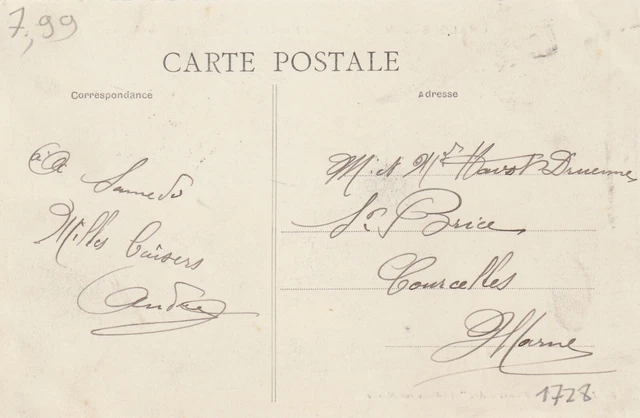 7,99
CARTE POSTALE
Correspondance
Adresse
à Samedi
Milles Baisers
André
M. et Mme Havot-Druenne
St Brice
Courcelles
Marne
1728